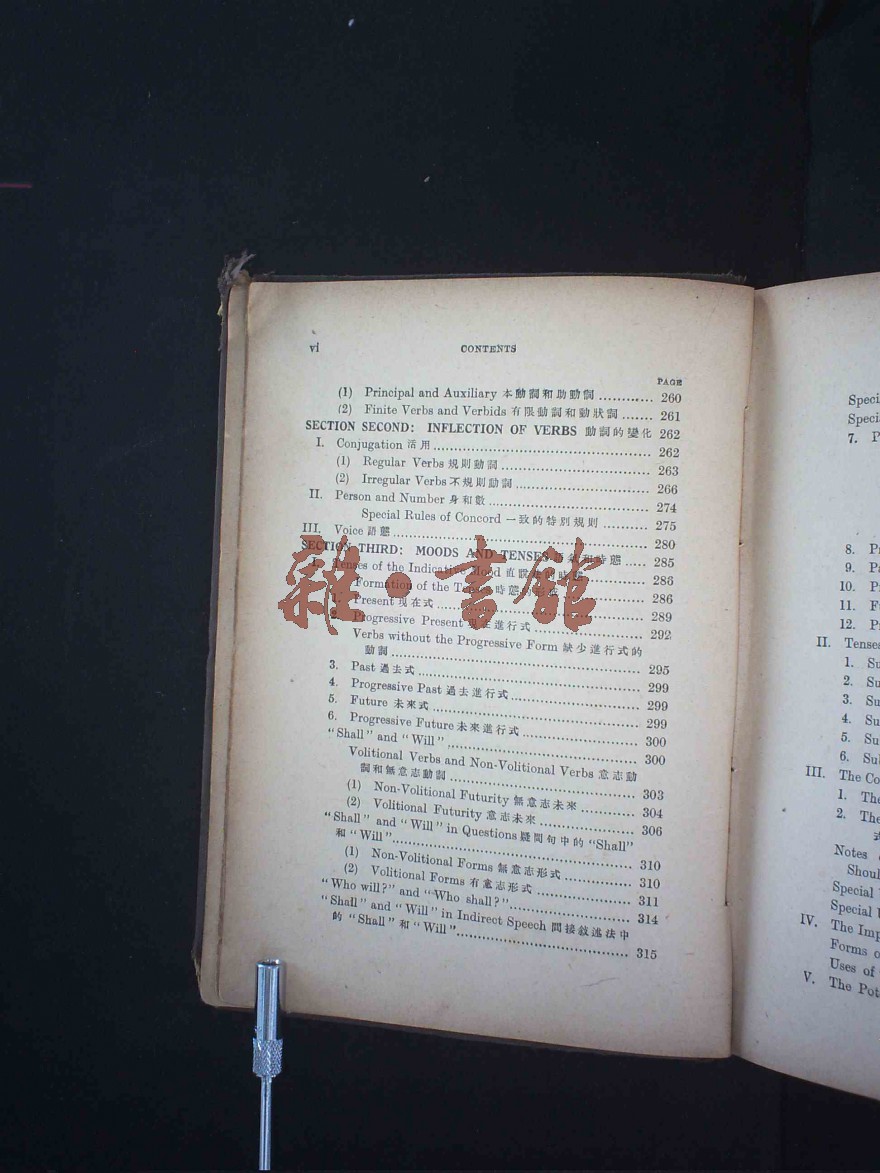 vi CONTENTS
PAGE
(1) Principal and Auxiliary 本動詞和助動詞 ............ 260
(2) Finite Verbs and Verbids 有限動詞和動狀詞 ....... 261
SECTION SECOND: INFLECTION OF VERBS 動詞的變化 262
I. Conjugation 活用 ............ 262
(1) Regular Verbs 規則動詞 ............ 263
(2) Irregular Verbs 不規則動詞 ............ 266
II. Person and Number 身和數 ............ 274
Special Rules of Concord 一致的特別規則 ............ 275
III. Voice 語態 ............ 280
SECTION THIRD: MOODS AND TENSES 語氣和時態 ..... 285
I. Tenses of the Indicative Mood 直說法的時態 ............ 286
Formation of the Tenses 時態的形成 ............ 286
1. Present 現在式 ............ 289
2. Progressive Present 現在進行式 ............ 292
Verbs without the Progressive Form 缺少進行式的
動詞 ............ 295
3. Past 過去式 ............ 299
4. Progressive Past 過去進行式 ............ 299
5. Future 未來式 ............ 299
6. Progressive Future 未來進行式 ............ 300
"Shall" and "Will" ............ 300
Volitional Verbs and Non-Volitional Verbs 意志動
詞和無意志動詞 ............ 303
(1) Non-Volitional Futurity 無意志未來 ............ 304
(2) Volitional Futurity 意志未來 ............ 306
"Shall" and "Will" in Questions 疑問句中的 "Shall"
和 "Will" ............ 310
(1) Non-Volitional Forms 無意志形式 ............ 310
(2) Volitional Forms 有意志形式 ............ 311
"Who will?" and "Who shall?" ............ 314
"Shall" and "Will" in Indirect Speech 間接敘述法中
的 "Shall" 和 "Will" ............ 315
雜·書館
7.
8.
9.
10.
11.
12.
II. Tenses
1.
2.
3.
4.
5.
6.
III. The
1. The
2. The
Notes
Special
Special
IV. The
Forms
Uses of
V. The